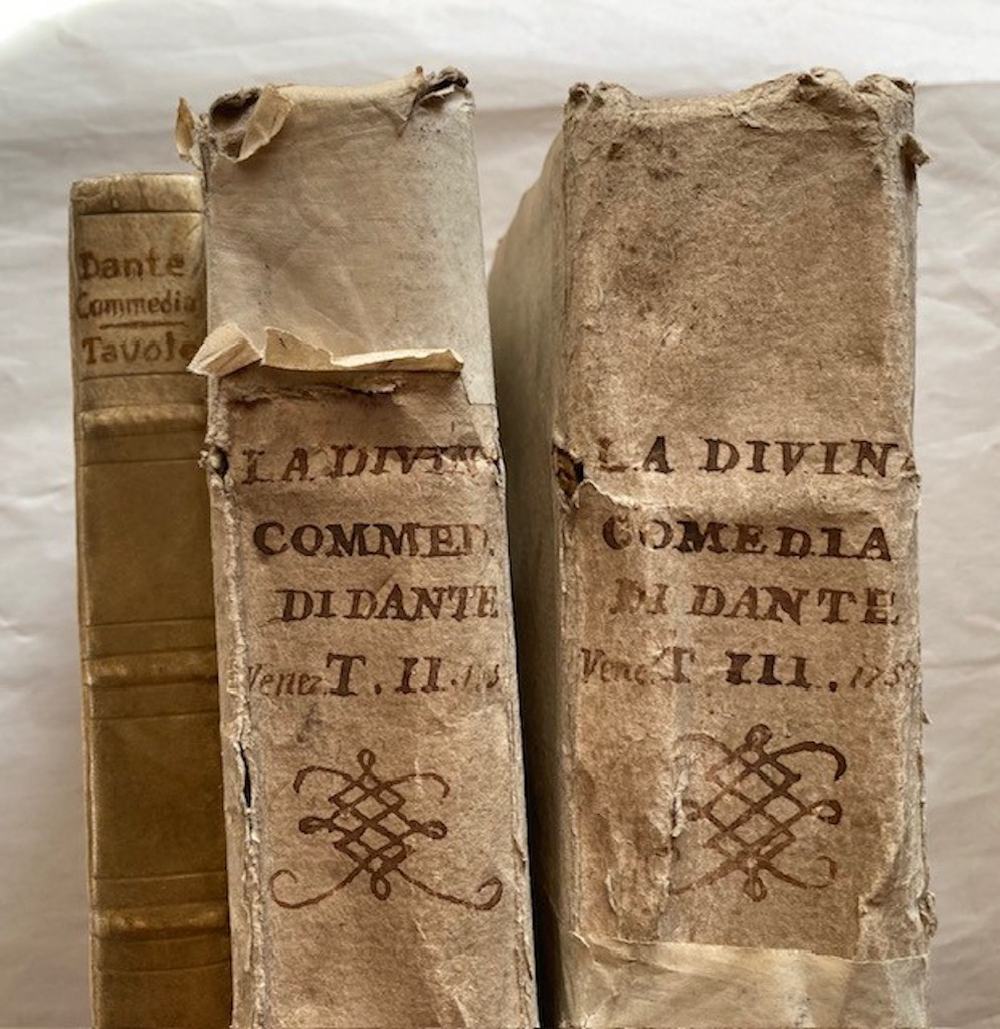 Dante
Commedia
Tavole
LA DIVIN
COMMED.
DI DANTE
Venez. T. II.
LA DIVIN
COMEDIA
DI DANTE
Venez. T III. 1757